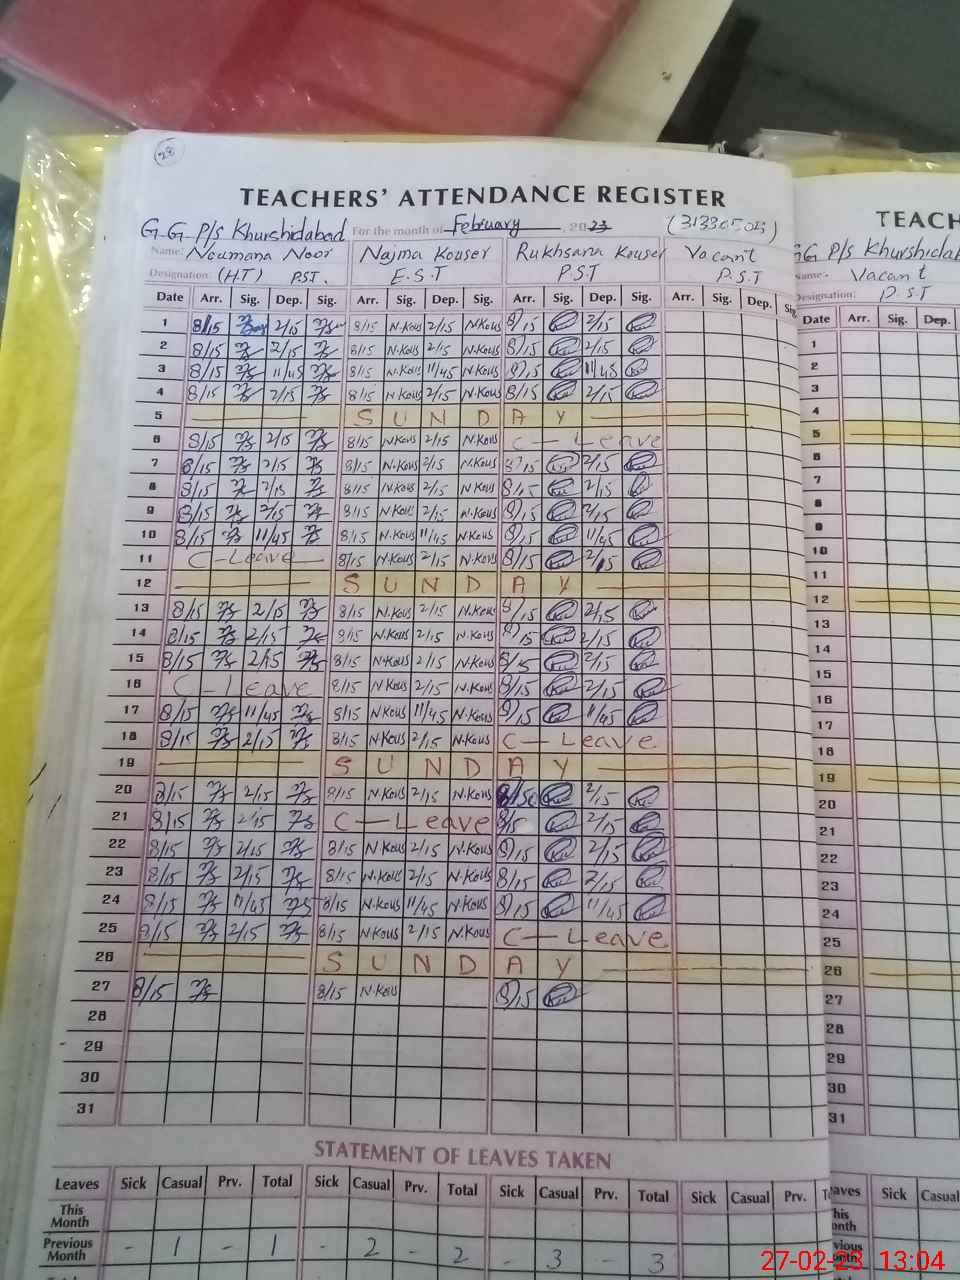 28
TEACHERS' ATTENDANCE REGISTER
G.G P/s Khurshidabad For the month of February, 2023 (31330503)
Name: Noumana Noor Najma Kouser Rukhsana Kouser Vacant
Designation: (HT) P.S.T. E.S.T P.S.T P.S.T
Date Arr. Sig. Dep. Sig. Arr. Sig. Dep. Sig. Arr. Sig. Dep. Sig. Arr. Sig. Dep. Sig.
1 8/15 2/15 8/15 N.Kous 2/15 N.Kous 8/15 2/15
2 8/15 2/15 8/15 N.Kous 2/15 N.Kous 8/15 2/15
3 8/15 11/45 8/15 N.Kous 11/45 N.Kous 8/15 11/45
4 8/15 2/15 8/15 N.Kous 2/15 N.Kous 8/15 2/15
5 S U N D A Y
6 8/15 2/15 8/15 N.Kous 2/15 N.Kous C - Leave
7 8/15 2/15 8/15 N.Kous 2/15 N.Kous 8/15 2/15
8 8/15 2/15 8/15 N.Kous 2/15 N.Kous 8/15 2/15
9 8/15 2/15 8/15 N.Kous 2/15 N.Kous 8/15 2/15
10 8/15 11/45 8/15 N.Kous 11/45 N.Kous 8/15 11/45
11 C-Leave 8/15 N.Kous 2/15 N.Kous 8/15 2/15
12 S U N D A Y
13 8/15 2/15 8/15 N.Kous 2/15 N.Kous 8/15 2/15
14 8/15 2/15 8/15 N.Kous 2/15 N.Kous 8/15 2/15
15 8/15 2/15 8/15 N.Kous 2/15 N.Kous 8/15 2/15
16 C-Leave 8/15 N.Kous 2/15 N.Kous 8/15 2/15
17 8/15 11/45 8/15 N.Kous 11/45 N.Kous 8/15 11/45
18 8/15 2/15 8/15 N.Kous 2/15 N.Kous C - Leave
19 S U N D A Y
20 8/15 2/15 8/15 N.Kous 2/15 N.Kous 2/15
21 8/15 2/15 C - Leave 8/15 2/15
22 8/15 2/15 8/15 N.Kous 2/15 N.Kous 8/15 2/15
23 8/15 2/15 8/15 N.Kous 2/15 N.Kous 8/15 2/15
24 8/15 11/45 8/15 N.Kous 11/45 N.Kous 8/15 11/45
25 8/15 2/15 8/15 N.Kous 2/15 N.Kous C - Leave
26 S U N D A Y
27 8/15 8/15 N.Kous 8/15
28
29
30
31
STATEMENT OF LEAVES TAKEN
Leaves Sick Casual Prv. Total Sick Casual Prv. Total Sick Casual Prv. Total Sick Casual Prv.
This Month
Previous Month - 1 - 1 - 2 - 2 - 3 - 3
TEACH
GG P/s Khurshidab
Name. Vacant
Designation: P.S.T
Date Arr. Sig. Dep.
1
2
3
4
5
6
7
8
9
10
11
12
13
14
15
16
17
18
19
20
21
22
23
24
25
26
27
28
29
30
31
Sick Casual
27-02-23 13:04